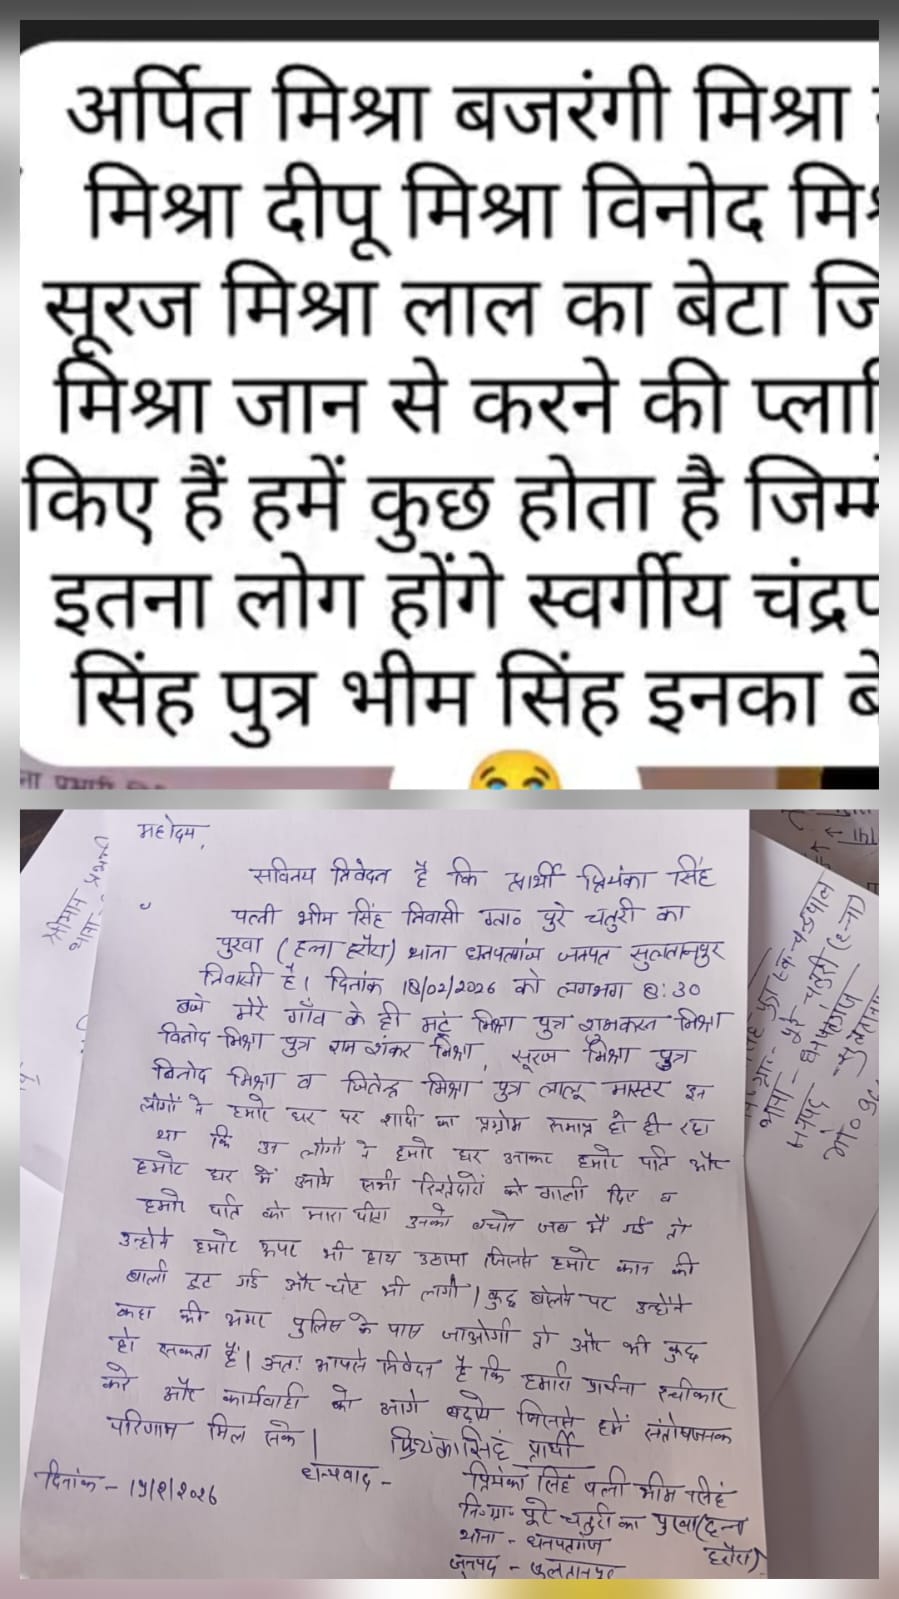 अर्पित मिश्रा बजरंगी मिश्रा
मिश्रा दीपू मिश्रा विनोद मिश्
सूरज मिश्रा लाल का बेटा जि
मिश्रा जान से करने की प्ला
किए हैं हमें कुछ होता है जिम्मे
इतना लोग होंगे स्वर्गीय चंद्रप
सिंह पुत्र भीम सिंह इनका बे
महोदय,
सविनय निवेदन है कि प्रार्थी प्रियंका सिंह
पत्नी भीम सिंह निवासी ग्रा० पुरे चतुरी का
पुरवा (हन्ना हरौरा) थाना धनपतगंज जनपत सुल्तानपुर
निवासी है। दिनांक 18/02/2026 को लगभग 8:30
बजे मेरे गाँव के ही मटूं मिश्रा पुत्र रामकरन मिश्रा
विनोद मिश्रा पुत्र राम शंकर मिश्रा, सूरज मिश्रा पुत्र
विनोद मिश्रा व जितेन्द्र मिश्रा पुत्र लालू मास्टर इन
लोगों ने हमारे घर पर शादी का प्रोग्राम समाप्त हो ही रहा
था कि उन लोगों ने हमारे घर आकर हमारे पति और
हमारे घर में आये सभी रिश्तेदारों को गाली दिए व
हमारे पति को मारा पीटा उनको बचाने जब मैं गई तो
उन्होंने हमारे ऊपर भी हाथ उठाया जिससे हमारे कान की
बाली टूट गई और चोट भी लगी। कुछ बोलने पर उन्होंने
कहा की अगर पुलिस के पास जाओगी तो और भी कुछ
हो सकता है। अतः आपसे निवेदन है कि हमारी प्रार्थना स्वीकार
करे और कार्यवाही को आगे बढ़ाये जिससे हमें संतोषजनक
परिणाम मिल सके।
प्रियंका सिंह प्रार्थी
धन्यवाद -
दिनांक - 19/2/2026
प्रियंका सिंह पत्नी भीम सिंह
नि०ग्रा० पूरे चतुरी का पुरवा (हन्ना
हरौरा)
थाना - धनपतगंज
जनपद - सुलतानपुर
श्रीमान प्रभारी
थाना
ग्रा०- पूरे चतुरी
थाना - धनपतगंज
जनपद - सुलतानपुर
मो० 9